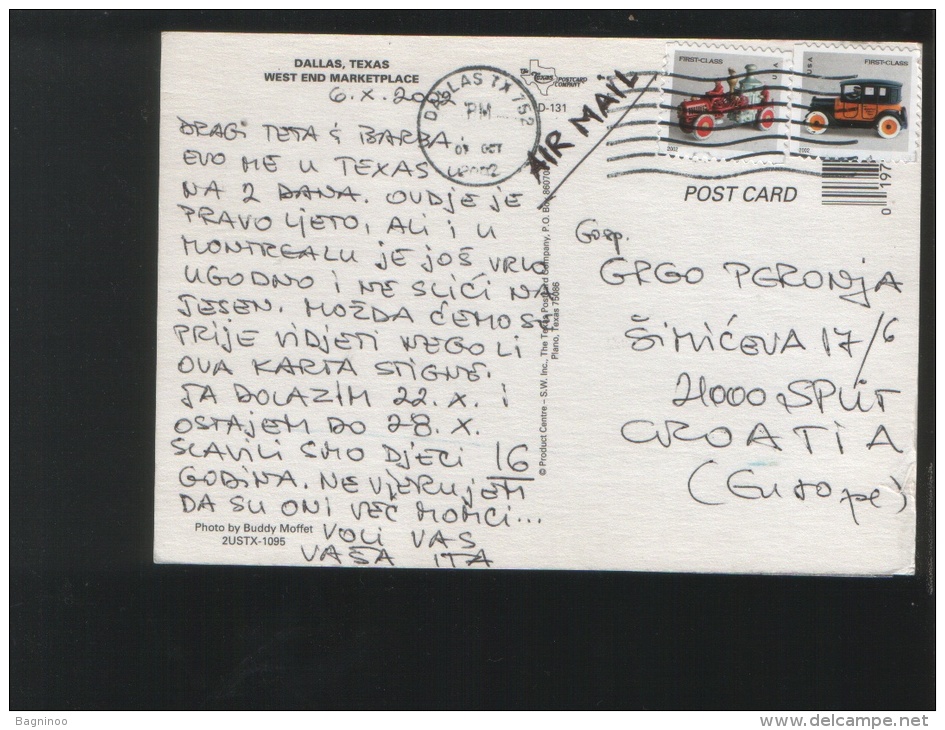 DALLAS, TEXAS
WEST END MARKETPLACE
6.X.2002
DRAGI TETA & BARBA,
EVO ME U TEXAS U
NA 2 DANA. OVDJE JE
PRAVO LJETO, ALI I U
MONTREALU JE JOŠ VRLO
UGODNO I NE SLIČI NA
JESEN. MOŽDA ĆEMO SE
PRIJE VIDJETI NEGO LI
OVA KARTA STIGNE.
JA DOLAZIM 22. X. I
OSTAJEM DO 28. X.
SLAVILI SMO DJECI 16
GODINA. NE VJERUJEM
DA SU ONI VEĆ MOMCI...
VOLI VAS
VAŠA ITA
Photo by Buddy Moffet
2USTX-1095
The Texas POSTCARD COMPANY
D-131
DALLAS TX 752
PM
OCT
2002
AIR MAIL
© Product Centre – S.W. Inc., The Texas Postcard Company, P.O. Box 860708
Plano, Texas 75086
FIRST-CLASS
USA
2002
FIRST-CLASS
USA
2002
POST CARD
0 197
Gosp.
GRGO PERONJA
ŠIMIĆEVA 17/6
21000 SPLIT
CROATIA
(Europe)
Bagninoo
www.delcampe.net